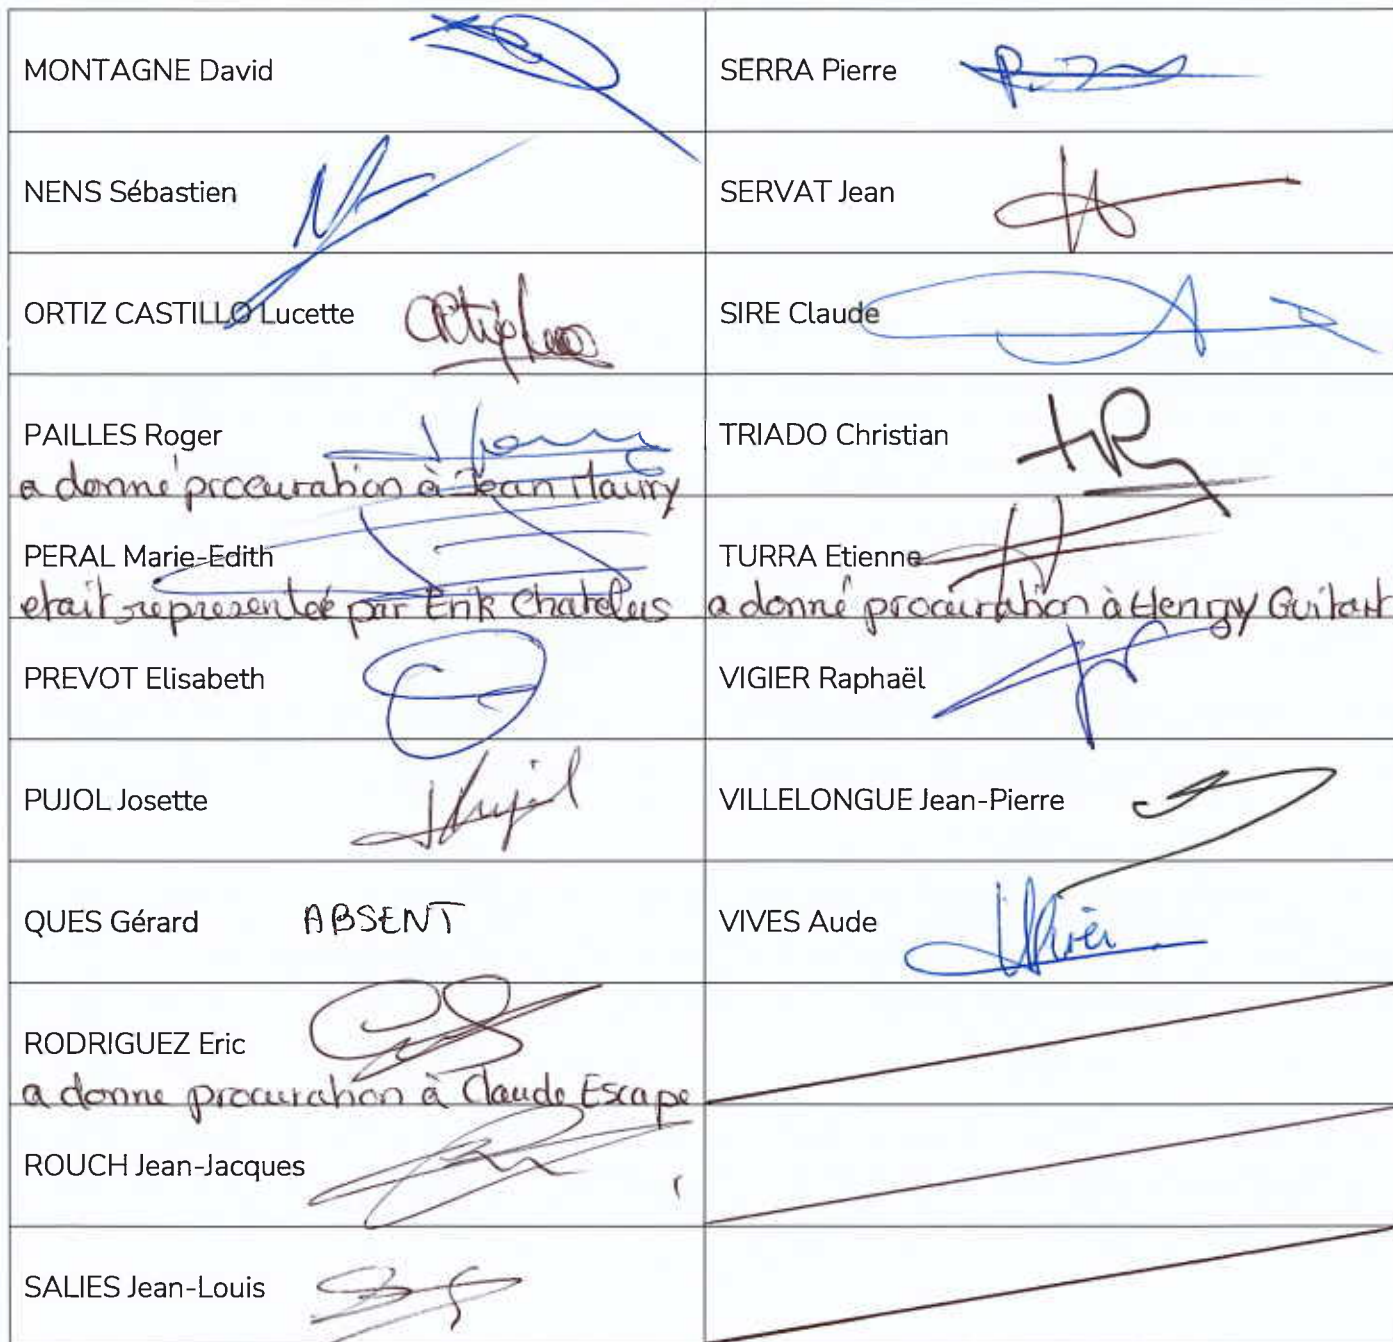 MONTAGNE David
SERRA Pierre
NENS Sébastien
SERVAT Jean
ORTIZ CASTILLO Lucette
SIRE Claude
PAILLES Roger
a donné procuration à Jean Maury
TRIADO Christian
PERAL Marie-Edith
etait representée par Erik Chatelus
TURRA Etienne
a donné procuration à Henry Guitart
PREVOT Elisabeth
VIGIER Raphaël
PUJOL Josette
VILLELONGUE Jean-Pierre
QUES Gérard ABSENT
VIVES Aude
RODRIGUEZ Eric
a donne procuration à Claude Escape
ROUCH Jean-Jacques
SALIES Jean-Louis